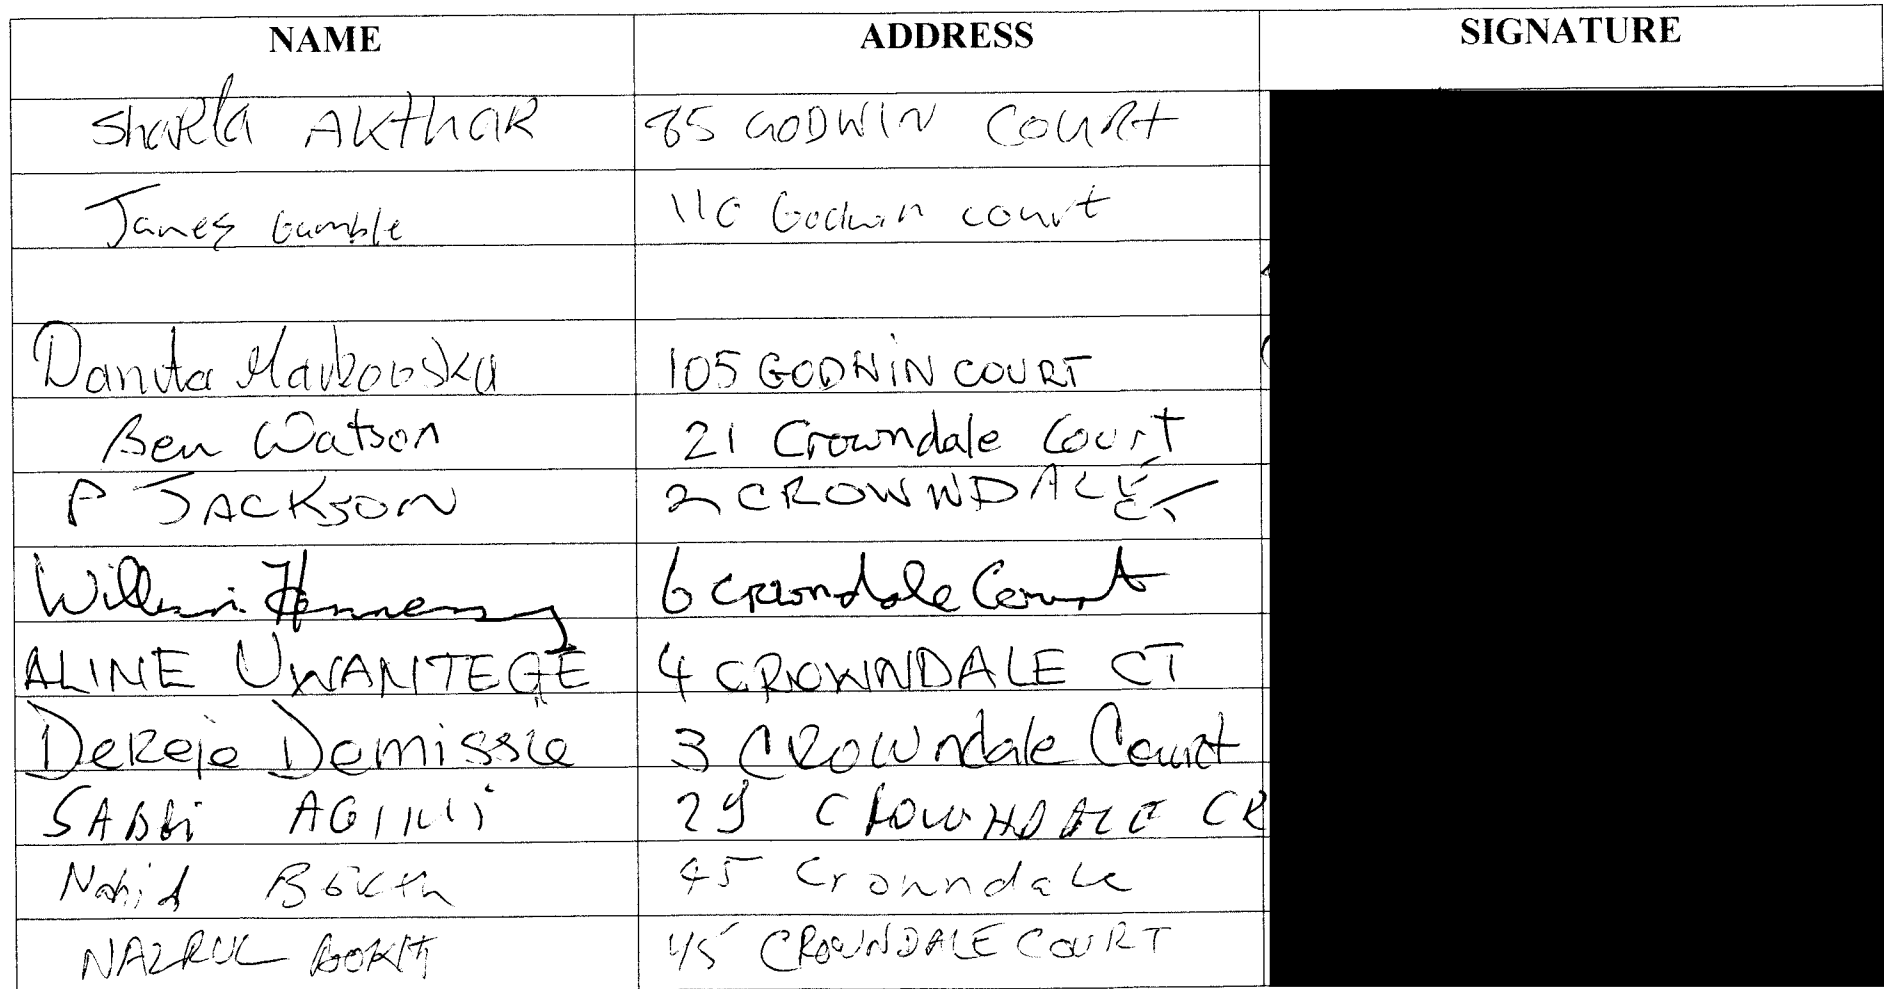 NAME ADDRESS SIGNATURE
AKTHAR 85 GODWIN COURT
James Gamble 110 Godwin court
Danuta 105 GODWIN COURT
Ben Watson 21 Crowndale Court
P JACKSON 2 CROWNDALE CT
William Hennessy 6 Crowndale Court
ALINE UWANTEGE 4 CROWNDALE CT
Dereje Demissie 3 CROWndale Court
SABRI 29 CROWNDALE CR
Nahid 45 Crowndale
NAZRUL BOKTH 45 CROWNDALE COURT